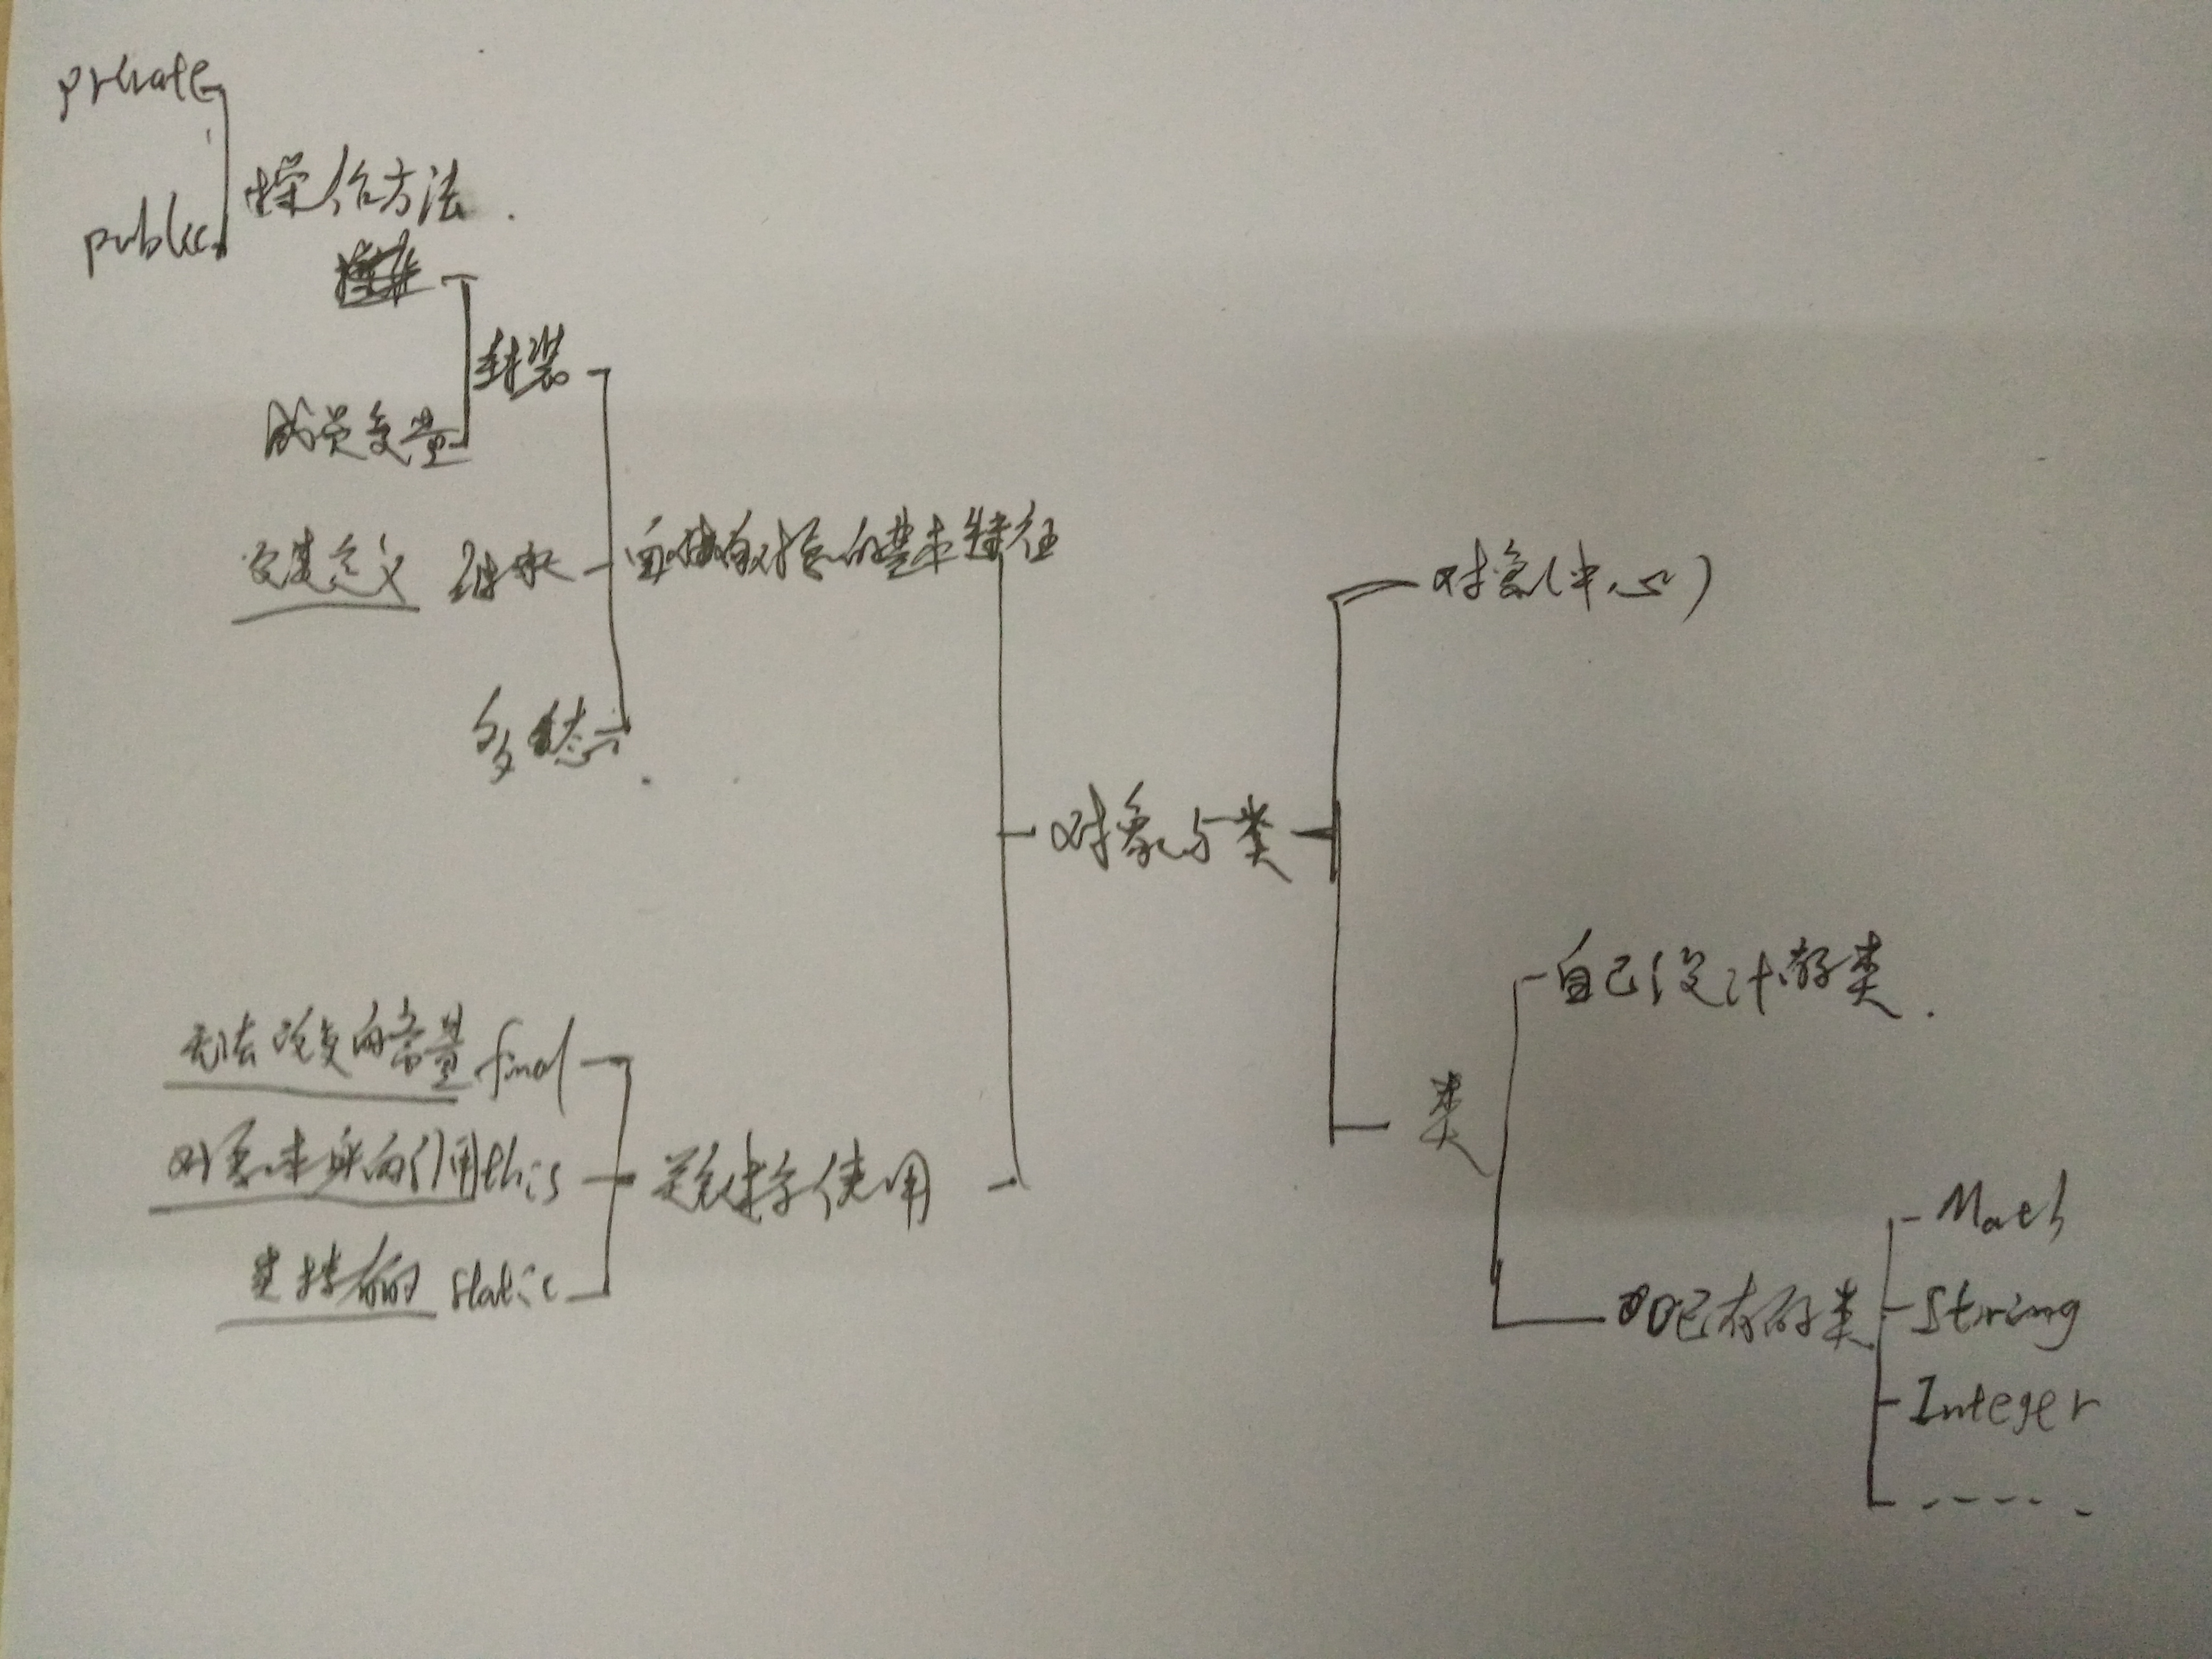 private
public
操作方法
封装
成员变量
继承
面向对象的基本特征
多态
对象(中心)
对象与类
自己设计的类
类
无法改变的常量 final
对象本身的引用 this
关键字使用
类持有的 static
已有的类
Math
String
Integer